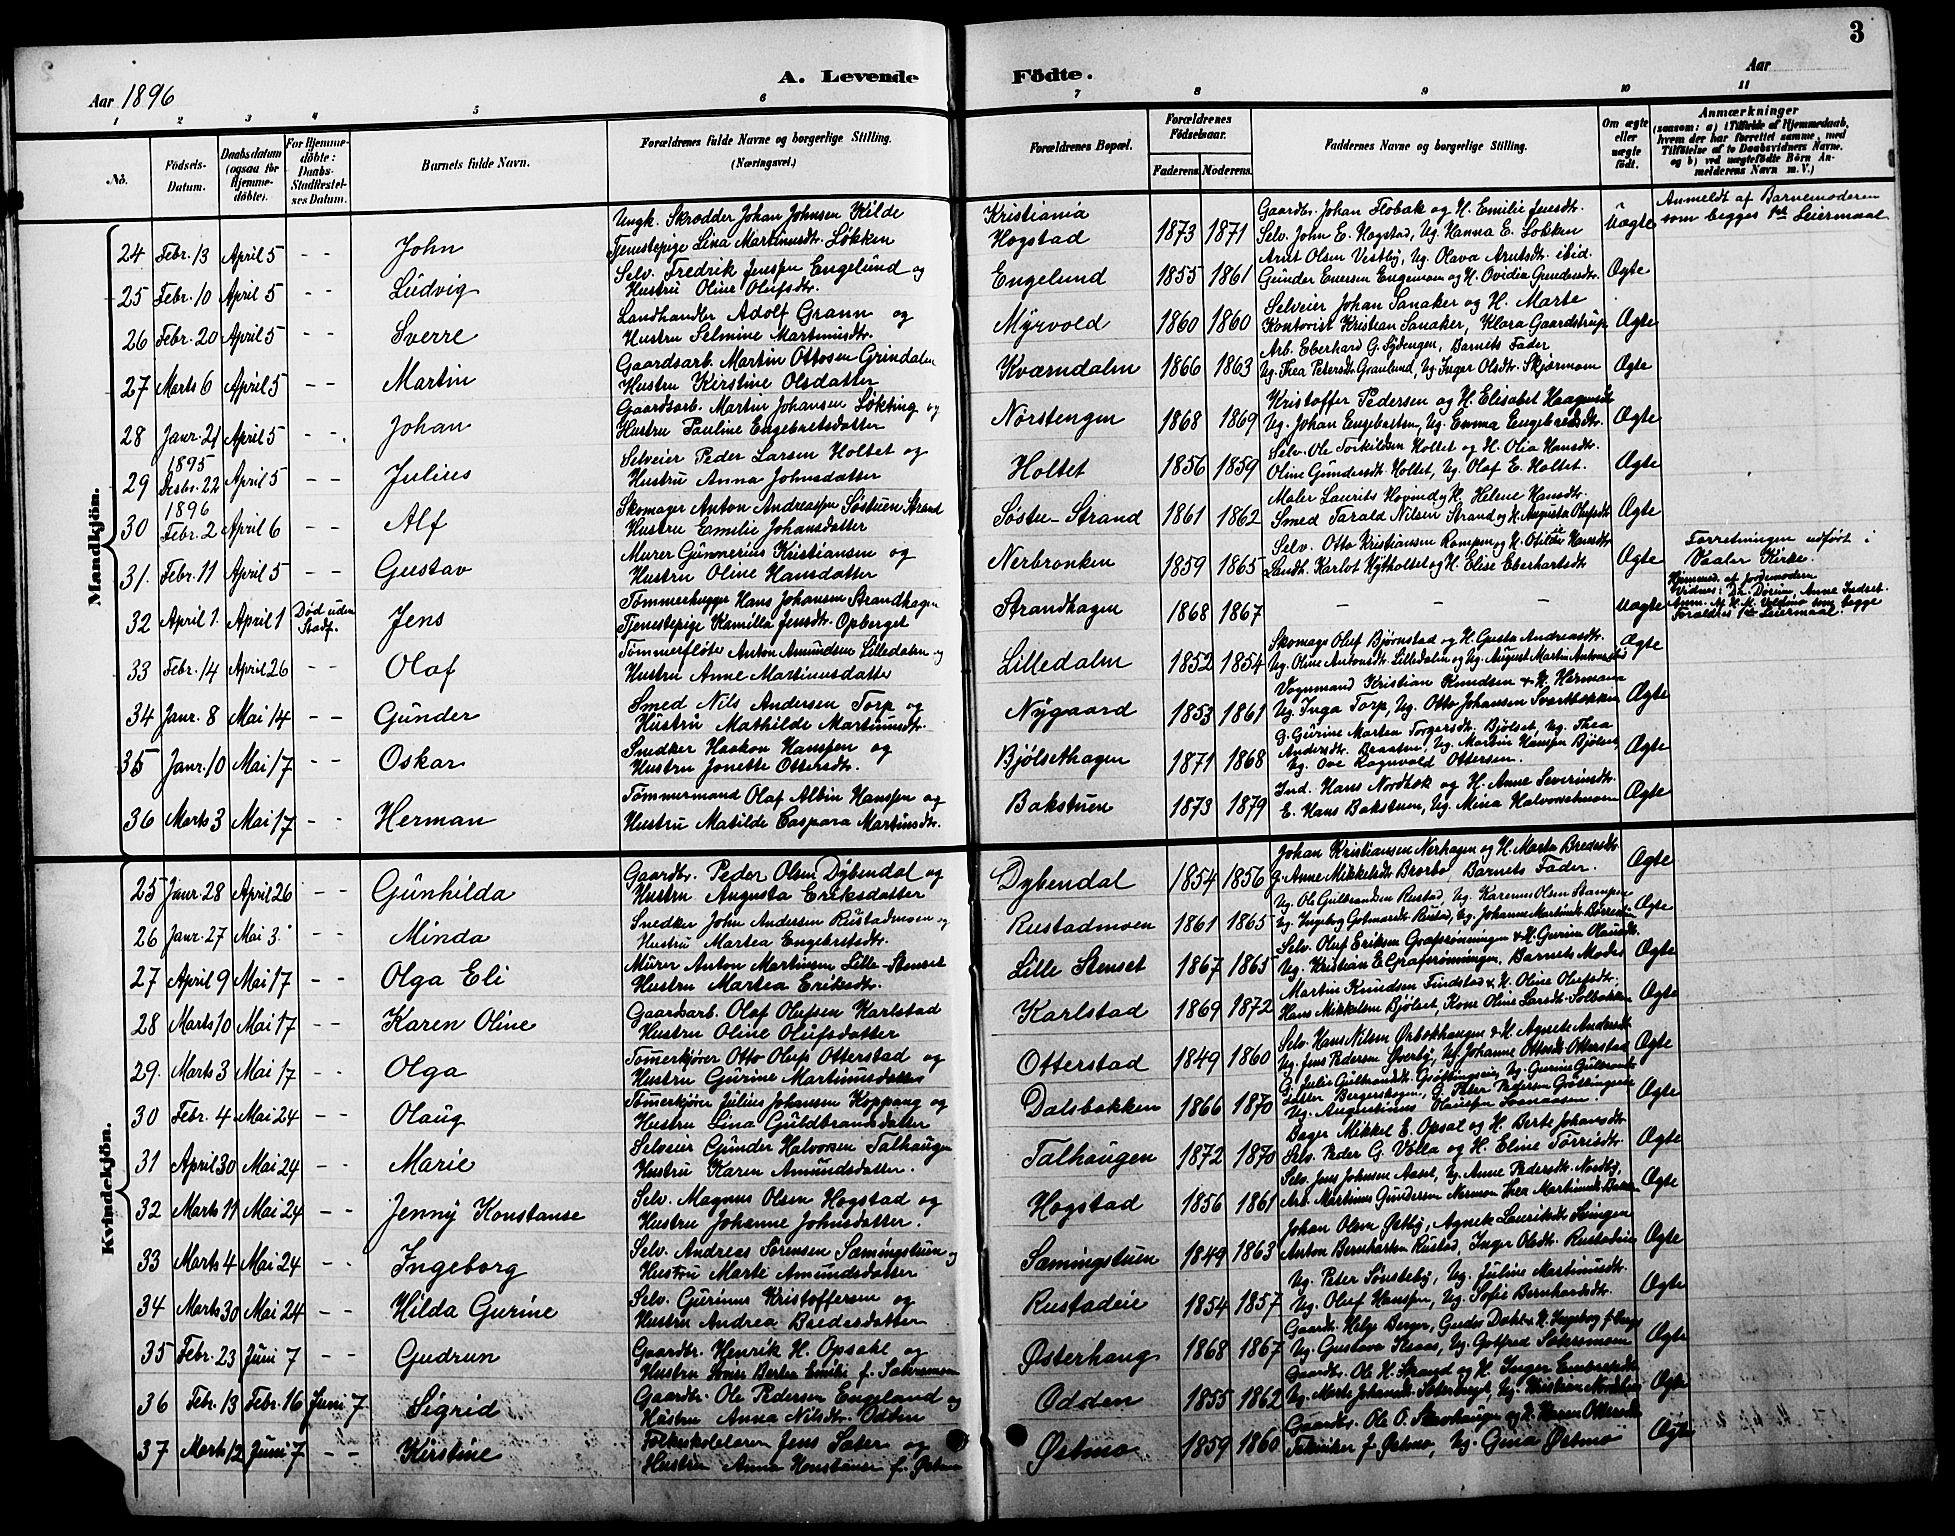 3
A. Levende Fødte.
Aar 1896
Aar
1 2 3 4 5 6 7 8 9 10 11
No.
Fødsels-Datum.
Daabsdatum (ogsaa for Hjemmedøbte).
For Hjemmedøbte: Daabs-Stadfæstelses Datum.
Barnets fulde Navn.
Forældrenes fulde Navne og borgerlige Stilling. (Næringsvei.)
Forældrenes Bopæl.
Forældrenes Fødselsaar.
Faderens Moderens
Faddernes Navne og borgerlige Stilling.
Om ægte eller uægte født.
Anmærkninger
(saasom: a) i Tilfælde af Hjemmedaab, hvem der har forrettet samme, med Tilføielse af to Daabsvidners Navne, og b) ved uægtefødte Børn Anmelderens Navn m. V.)
Mandkjøn.
Ungk. Skrædder Johan Johnsen Kilde Kristiania Gaardbr. Johan Flobak og H. Emilie Jensdtr. Anmeldt af Barnemoderen
24 Febr. 13 April 5 - - John Tjenestepige Lina Martinusdtr. Løkken Hogstad 1873 1871 Selv. John E. Hogstad, Ug. Hanna E. Løkken Uægte som begges 1ste Leiermaal
Selv. Fredrik Jenssen Engelund og Arnt Olsen Vestby, Ug. Olava Arntsdtr. ibid.
25 Febr. 10 April 5 - - Ludvig Hustru Oline Olufsdtr. Engelund 1855 1861 Gunder Enersen Engemoen og H. Ovidia Gundersdtr. Ægte
Landhandler Adolf Grann og Selveier Johan Sanaker og H. Marte
26 Febr. 20 April 5 - - Sverre Hustru Selmine Martinusdtr. Myrvold 1860 1860 Kontorist Kristian Sanaker, Klara Gaardstrup Ægte
Gaardsarb. Martin Ottosen Grindalen Arb. Eberhard G. Sydengen, Barnets Fader
27 Marts 6 April 5 - - Martin Hustru Kirstine Olsdatter Kværndalen 1866 1863 Ug. Thea Petersdtr. Granlund, Ug. Inger Olsdtr. Skjærmoen Ægte
Gaardsarb. Martin Johansen Løkting og Kristoffer Pedersen og H. Elisabet Haagensdtr
28 Janr. 21 April 5 - - Johan Hustru Pauline Engebretsdatter Nørstengen 1868 1869 Ug. Johan Engebretsen, Ug. Emma Engebretsdtr. Ægte
1895 Selveier Peder Larsen Holtet og Selv. Ole Torkildsen Holtet og H. Olia Hansdtr.
29 Desbr. 22 April 5 - - Julius Hustru Anna Johnsdatter Holtet 1856 1859 Oline Gundersdtr. Holtet, Ug. Olaf E. Holtet. Ægte
1896 Skomager Anton Andreassen Søstuen Strand Maler Laurits Hovind og H. Helene Hansdtr.
30 Febr. 2 April 6 - - Alf Hustru Emilie Johansdatter Søstu-Strand 1861 1862 Smed Tarald Nilsen Strand og H. Augusta Olufsdtr Ægte
Murer Gunnerius Kristiansen og Selv. Otto Kristiansen Rompen og H. Otilie Hansdtr Forretningen udført i
31. Febr. 11 April 5 - - Gustav Hustru Oline Hansdatter Nerbronken 1859 1865 Landh. Karlot Nytholtet og H. Elise Eberhartsdtr Ægte Vaaler Kirke.
Tømmerhugger Hans Johansen Strandhagen Hjemmed. af Jordemoderen
32 April 1. April 1 Død uden Stadf. Jens Tjenestepige Kamilla Jensdtr. Opberget Strandhagen 1868 1867 - - - Uægte
Forældres 1ste Leiermaal.
Tømmerfløter Anton Amundsen Lilledalen og Skomager Oluf Bjørnstad og H. Gusta Andreasdtr.
33 Febr. 14 April 26 - - Olaf Hustru Anne Martinusdatter Lilledalen 1852 1854 Ug. Oline Antonsdtr. Lilledalen og Ug. August Martin Antonsstad Ægte
Smed Nils Andersen Torp og Vognmand Kristian Knudsen & H. Hermana
34 Janr. 8 Mai 14 - - Gunder Hustru Mathilde Martinusdtr. Nygaard 1853 1861 Ug. Inga Torp, Ug. Otto Johansen Svartbekken Ægte
Snedker Haakon Hanssen og G. Gurine Martea Torgersdtr. Bjølset, Ug. Thea
35 Janr. 10 Mai 17 - - Oskar Hustru Jonette Ottersdtr. Bjølsethagen 1871 1868 Andersdtr. Braaten, Ug. Martin Hanssen Bjølset, Ægte
Ug. Ove Ragnvald Ottersen.
Tømmermand Olaf Albin Hanssen og Ind. Hans Nordhok og H. Anne Severinsdtr.
36 Marts 3 Mai 17 - - Herman Hustru Matilde Caspara Martinsdtr. Bakstuen 1873 1879 E. Hans Bakstuen, Ug. Mina Halvorsetmoen Ægte
Kvindekjøn.
Gaardbr. Peder Olsen Dybendal og Johan Kristiansen Nerhagen og H. Marte Bredesdtr
25 Janr. 28 April 26 - - Gunhilda Hustru Augusta Eriksdatter Dybendal 1854 1856 G. Anne Mikkelsdtr. Brorbø Barnets Fader. Ægte
Snedker John Andersen Rustadmoen og Ug. Ole Gulbrandsen Rustad, Ug. Karenus Olsen Stampen
26 Janr. 27 Mai 3. - - Minda Hustru Martea Engebretsdtr. Rustadmoen 1861 1865 Ug. Ingeborg Gotmarsdtr. Rustad, Ug. Johanne Martinusdtr. Ægte
Murer Anton Martinsen Lille-Stenset Selv. Oluf Eriksen Grafsrønningen & H. Gurine Olausdtr.
27 April 9 Mai 17 - - Olga Eli Hustru Martea Eriksdtr. Lille Stenset 1867 1865 Ug. Kristian E. Grafsrønningen, Barnets Moder Ægte
Gaardsarb. Olaf Olufsen Karlstad Martin Knudsen Findstad & H. Oline Olufsdtr.
28 Marts 10 Mai 17 - - Karen Oline Hustru Oline Olufsdatter Karlstad 1869 1872 Hans Mikkelsen Bjølset, Kone Oline Larsdtr. Solbakken Ægte
Tømerkjører Otto Olufs Otterstad og Selv. Hans Nilsen Ørbækhaugen & H. Agnete Andersdt.
29. Marts 3 Mai 17 - - Olga Hustru Gurine Martinusdatter Otterstad 1849 1860 Ug. Jens Pedersen Øverby, Ug. Johanne Ottosdtr. Otterstad Ægte
Tømerkjører Julius Johansen Koppang og
30 Febr. 4 Mai 24 - - Olaug Hustru Lina Guldbrandsdatter Dalsbakken 1866 1870 Ægte
Selveier Gunder Halvorsen Talhaugen Bager Mikkel E. Opsal og H. Berte Johansdtr.
31 April 30 Mai 24 - - Marie Hustru Karen Amundsdatter. Talhaugen 1872 1870 Selv. Peder G. Volla og H. Eline Torrisdtr. Ægte
Selv. Magnus Olsen Hogstad og Selv. Jens Johnsen Aaset, Ug. Anne Pedersdtr. Nordby,
32 Marts 11 Mai 24 - - Jenny Konstanse Hustru Johanne Johnsdatter. Hogstad 1856 1861 Arb. Martinus Gundersen Nermoen Thea Martinusdtr. Ægte
Selv. Andreas Sørensen Sæmingstuen og Johan Olsen Østby, Agnete Lauritsdtr. Svingen
33 Marts 4 Mai 24 - - Ingeborg Hustru Marte Amundsdatter Sæmingstuen 1849 1863 Anton Bernhartsen Rustad, Inger Olsdtr. Rustadeie Ægte
Selv. Gurinus Kristoffersen og Ug. Peter Sønsteby, Ug. Julius Martinusdtr.
34 Marts 30 Mai 24 - - Hilda Gurine Hustru Andrea Bredesdatter Rustadeie 1854 1857 Ug. Oluf Hanssen, Ug. Sofie Bernhardsdtr. Ægte
Gaardbr. Henrik H. Opsahl og Gaardb. Helge Berger, Gudes Dahl & H. Ingeborg
35 Febr. 23 Juni 7 - - Gudrun Hustru Berta Emilie f. Sætremoen Østerhaug 1868 1867 Ug. Gustava Knaas, Ug. Gotfred Sætremoen Ægte
Gaardbr. Ole Pedersen Engeland og Gaardbr. Ole H. Strand og H. Inger Embretsdtr
36 Febr. 13 Febr. 16 Juni 7 Sigrid Hustru Anna Nilsdtr. Odden Odden 1855 1862 Ug. Marte Johansdtr Ug. Kristian Nordbye Ægte
Folkeskolelærer Jens Sæter og Gaardbr. Ole O. Stavhaugen og H. Karen Ottersdtr
37 Marts 12 Juni 7 - - Kirstine Hustru Anna Konstanse f. Østmo Østmo 1859 1860 Tekniker J. Østmo, Ug. Gina Østmo Ægte